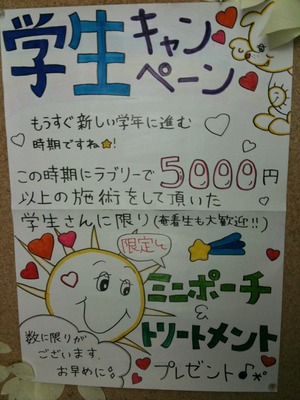 学生キャンペーン
もうすぐ新しい学年に進む
時期ですね!
この時期にラブリーで5000円
以上の施術をして頂いた
学生さんに限り(奄看生も大歓迎!!)
限定で
ミニポーチ
&
トリートメント
プレゼント♪
数に限りが
ございます。
お早めに!!